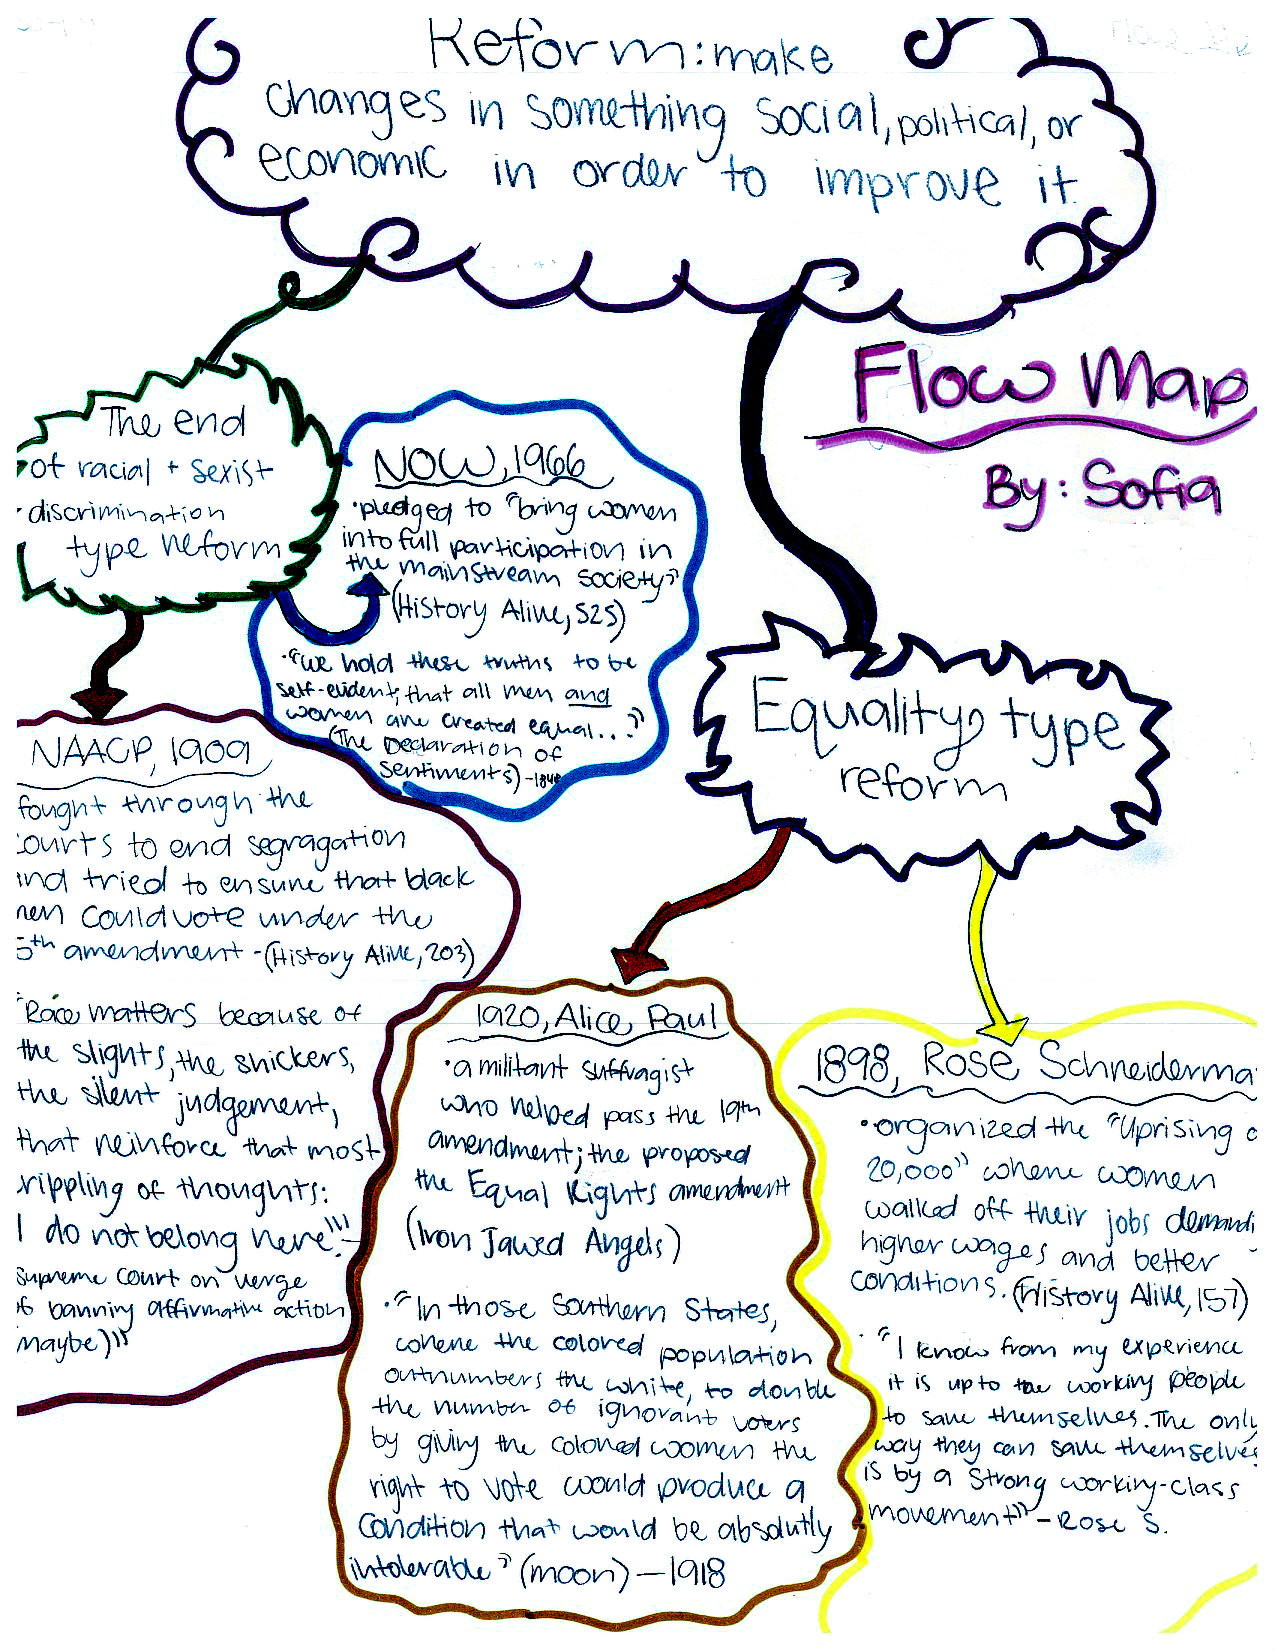 Reform: make
changes in something social, political, or
economic in order to improve it.
Flow Map
By: Sofia
The end
of racial + sexist
discrimination
type reform
NOW, 1966
•pledged to "bring women
into full participation in
the mainstream society"
(History Alive, 525)
•"we hold these truths to be
self-evident; that all men and
women are created equal..."
(The Declaration of
Sentiments) -1848
NAACP, 1909
fought through the
ourts to end segragation
and tried to ensure that black
men could vote under the
5th amendment -(History Alive, 203)
"Race matters because of
the slights, the snickers,
the silent judgement,
that reinforce that most
rippling of thoughts:
I do not belong here"-
Supreme court on verge
of banning affirmative action
maybe)"
Equality, type
reform
1920, Alice Paul
•a militant suffragist
who helped pass the 19th
amendment; the proposed
the Equal Rights amendment
(Iron Jawed Angels)
•"In those Southern States,
where the colored population
outnumbers the white, to double
the number of ignorant voters
by giving the colored women the
right to vote would produce a
condition that would be absolutly
intolerable" (moon) -1918
1898, Rose Schneiderma
•organized the "Uprising o
20,000" where women
walked off their jobs demandi
higher wages and better
conditions. (History Alive, 157)
•"I know from my experience
it is up to the working people
to save themselves. The only
way they can save themselves
is by a strong working-class
movement" - Rose S.